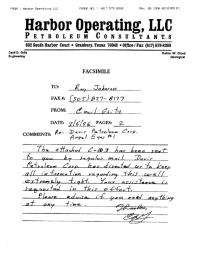 FROM : Harbor Operating, LLC
PHONE NO. : 817 579 8288
Harbor Operating, LLC
PETROLEUM CONSULTANTS
902 South Harbor Court • Granbury, Texas 76048 • Office/Fax (817) 579-8288
Engineering
Geological
FACSIMILE
TO: Roy Johnson
FAX#: (505) 827-8177
FROM:
DATE: PAGES: 2
COMMENTS: Re: Davis Petroleum Corp.
The attached C-103 has been sent
to you by regular mail. Davis
Petroleum Corp. has directed us to keep
all information regarding this well
extremely tight. Your assistance is
requested in this effort.
Please advise if you need anything
at any time.